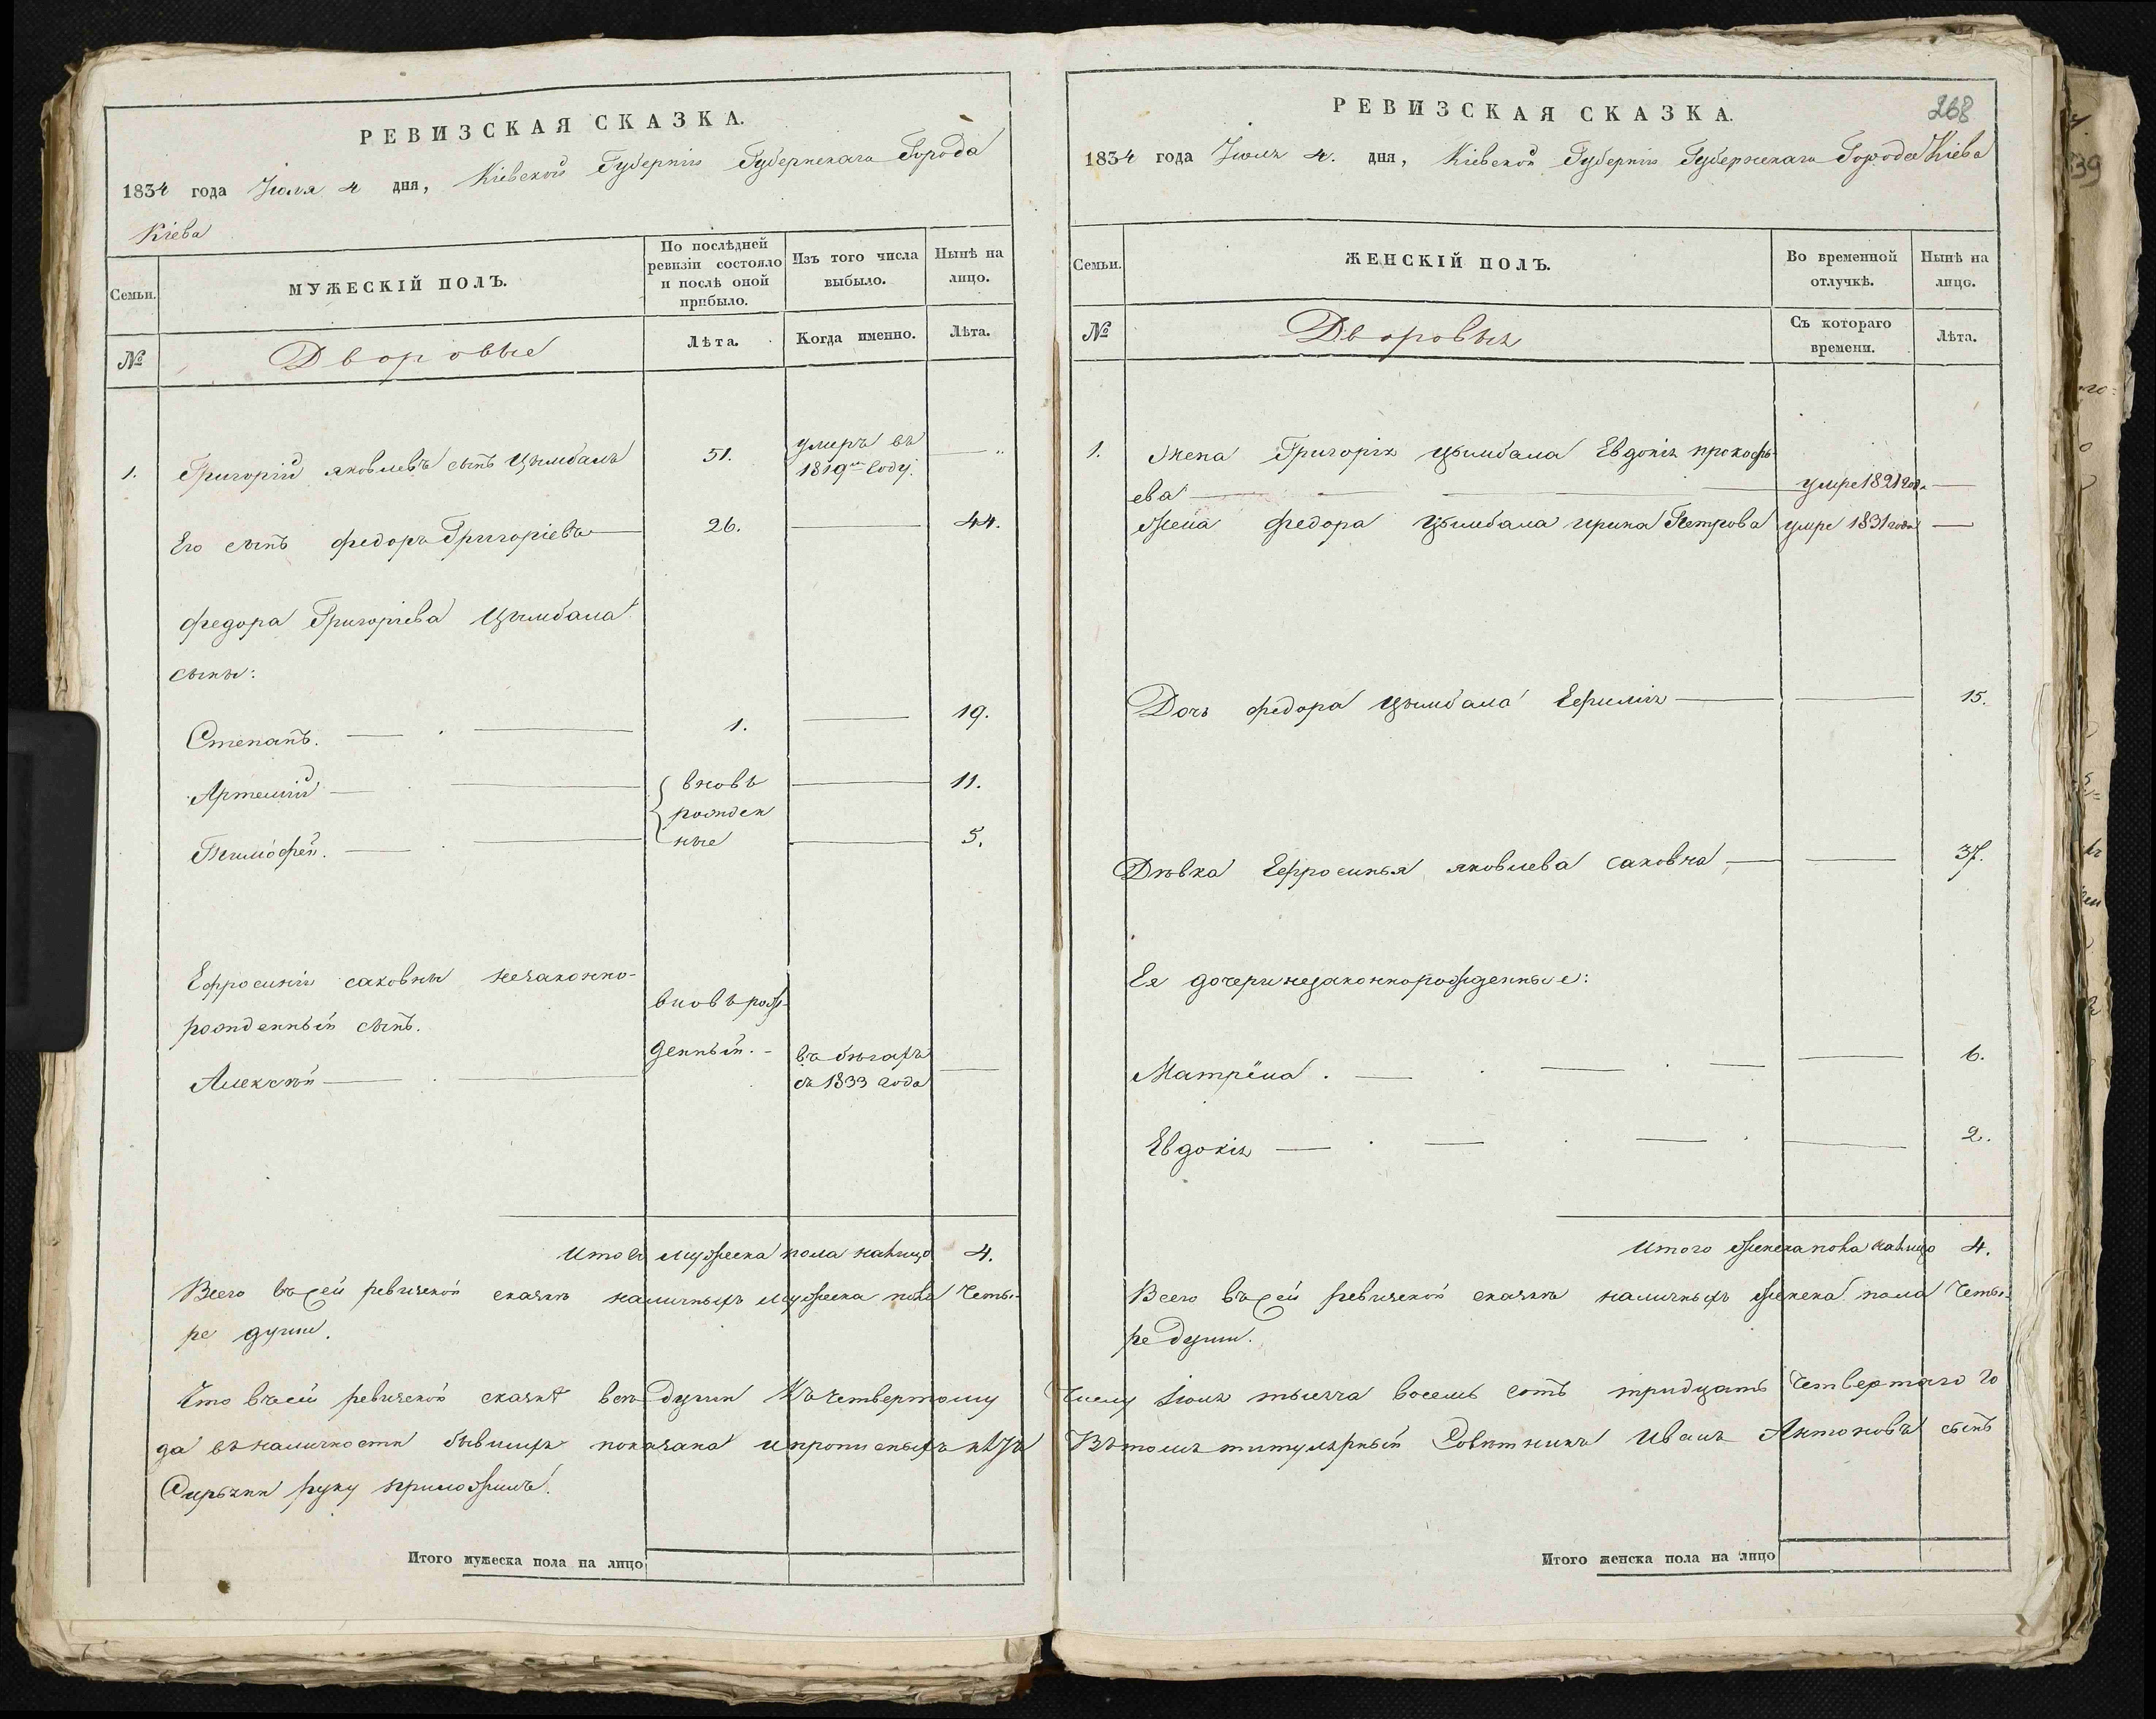 РЕВИЗСКАЯ СКАЗКА.
1834 года Іюля 4 дня, Кіевской Губерніи Губернскаго Города
Кіева
Семьи.
МУЖЕСКІЙ ПОЛЪ.
По послѣдней
ревизіи состояло
и послѣ оной
прибыло.
Изъ того числа
выбыло.
Нынѣ на
лицо.
№
Дворовые
Лѣта.
Когда именно.
Лѣта.
1. Григорій яковлевъ сынъ Цымбалъ 51. умеръ въ
1819м Году.
Его сынъ федоръ Григоріевъ 26. 44.
федора Григоріева Цымбала
сыны:
Степанъ. 1. 19.
Артемій вновь 11.
рожден
Тимофей. ные 5.
Ефросиніи саковны незаконно-
рожденный сынъ.
вновь рож-
денный.
Алексѣй въ бѣгахъ
съ 1833 года
Итого мужеска пола налицо 4.
Всего въ сей ревизской сказкѣ наличныхъ мужеска пола Четы-
ре души.
Что въ сей ревизской сказкѣ всѣ души къ Четвертому
да въ наличности бывшихъ показана и прописныхъ нѣтъ
руку приложилъ.
Итого мужеска пола на лицо
РЕВИЗСКАЯ СКАЗКА.
268
1834 года Іюля 4. дня, Кіевской Губерніи Губернскаго Города Кіева
Семьи.
ЖЕНСКІЙ ПОЛЪ.
Во временной
отлучкѣ.
Нынѣ на
лицо.
№
Дворовыя
Съ котораго
времени.
Лѣта.
1. Жена Григорія Цымбала Евдокія прокофь-
ева умре 1821 года
Жена федора Цымбала ирина Петрова умре 1831 года
Дочь федора Цымбала Ефимія 15.
Дѣвка Ефросинья яковлева саковна 37.
Ея дочери незаконнорожденные:
Матрёна. 6.
Евдокія 2.
Итого женска пола налицо 4.
Всего въ сей ревизской сказкѣ наличныхъ женска пола Четы-
ре души.
Числу Іюля тысяча восемь сотъ тридцать Четвертаго го
Въ томъ титулярный Совѣтникъ Иванъ Антоновъ сынъ
Итого женска пола на лицо
139